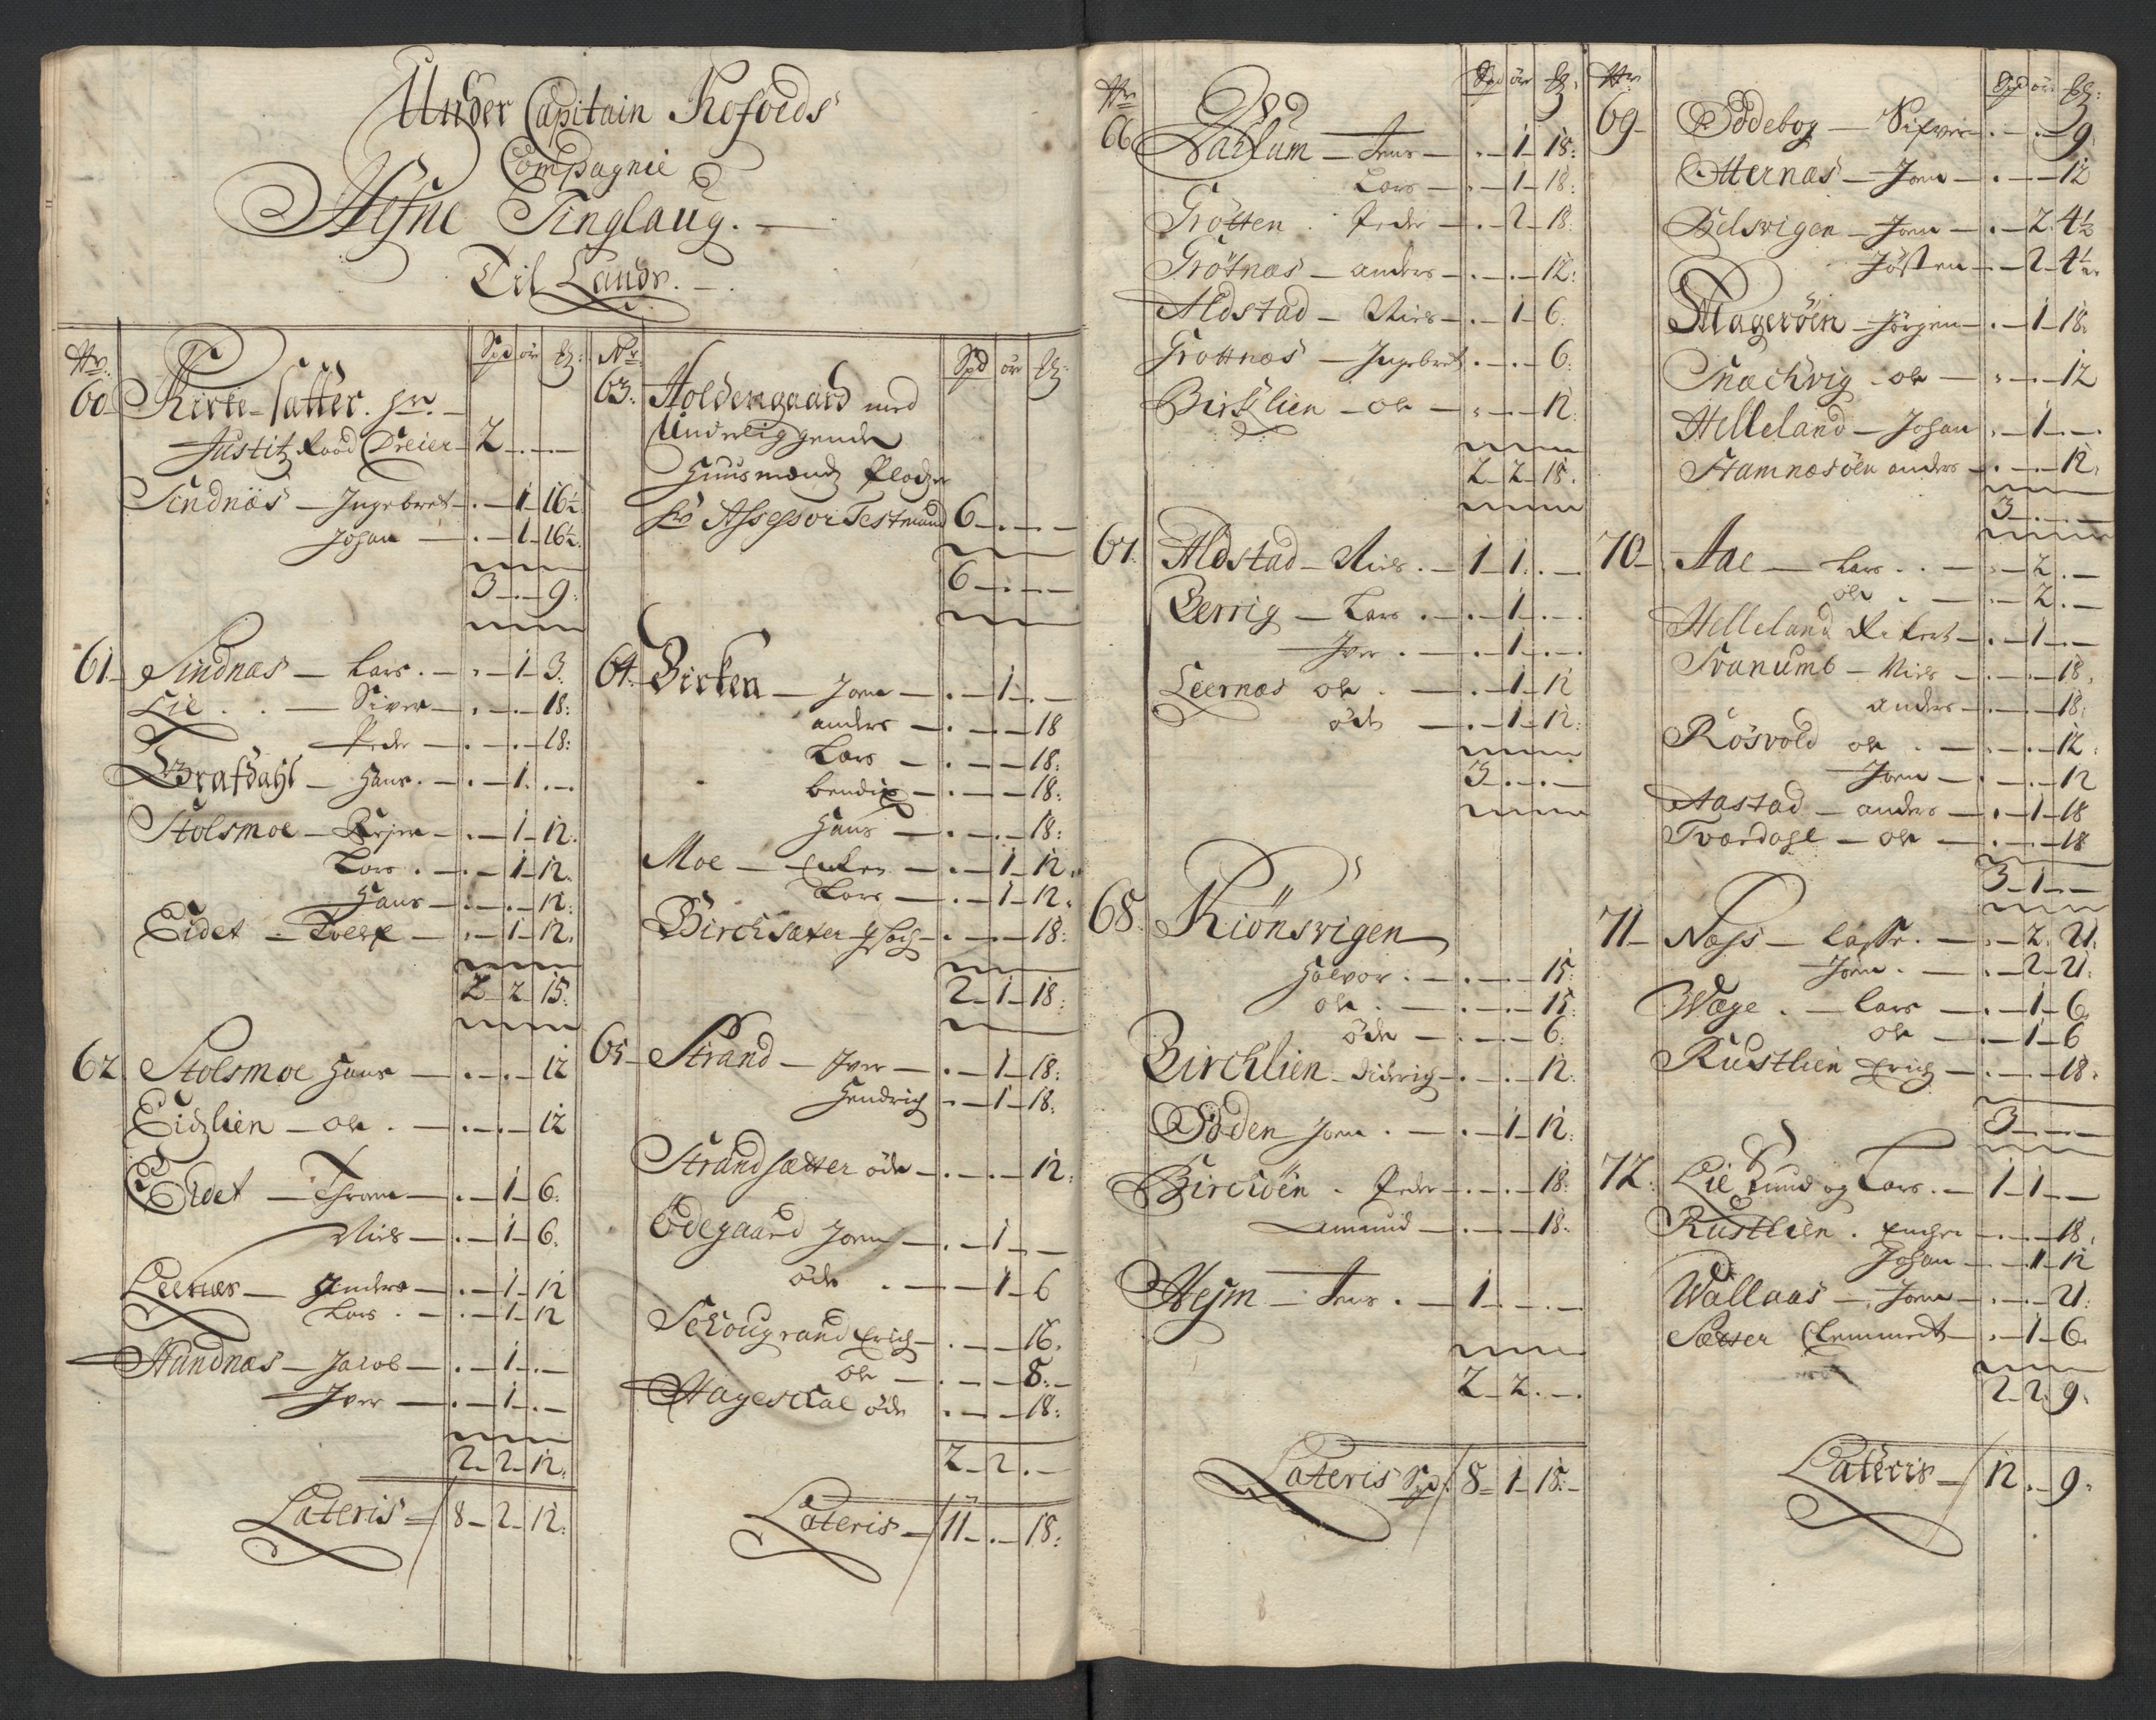 Under Capitain Kofoeds
Compagnie
Hefne Tinglaug.
Til Lands.
Nr. Spd ör
60 Kirke-Satter. hr.
Justitz Raad Dreier 2 . .
Sindnäs Ingebret . 1 16½
Johan . 1 16½
3 . 9
61 Sindnas Lars . 1 3
Lie Siver . . 18
Peder . . 18
Grafdahl Hans . 1 .
Stolsmoe . 1 12
Lars . 1 12
Hans . . 12
Eidet . 1 12
2 2 15
62 Stolsmoe Hans . . 12
Eidslien ole . . 12
Eidet . 1 6
Niels . 1 6
Leernes Anders . 1 12
Lars . 1 12
Hundnæs Jacob . 1 .
Iver . 1 .
2 2 12
Lateris 8 2 12
Nr. Spd ör
63 Holdengaard med
Underliggende
Huusmænds Pladzer
Assessor Testmand 6 . .
6 . .
64 Birken Joen . 1 .
anders . . 18
Lars . . 18
bendix . . 18
Hans . . 18
Moe Enken . 1 12
Lars . 1 12
Birchsæter . . 18
2 1 18
65 Strand Iver . 1 18
Hendrich . 1 18
Strandsætter öde . . 12
Ödegaard Joen . 1 .
öde . 1 6
Schougrand Erich . . 16
ole . . 8
Hageschal öde . . 18
2 2 .
Lateris 11 . 18
Nr. Spd ör
66 Jens . 1 18
Lars . 1 18
Grötten Peder . 2 18
Grötnæs anders . . 12
Aldstad Niels . 1 6
Grottnæs Ingebret . . 6
Birklien ole . . 12
2 2 18
67 Aldstad Niels 1 1 .
Berrig Lars . 1 .
Iver . 1 .
Leernæs ole . 1 12
öde . 1 12
3 . .
68 Kiönsvigen
Halvor . . 15
ole . . 15
öde . . 6
Birchlien Didrig . . 12
Ödden Joen . 1 12
Peder . . 18
Amund . . 18
Hejm Jens 1 . .
2 2 .
Lateris Spd 8 1 18
Nr. Spd ör
69 Oddebog . . 9
Otternæs Joen . . 12
Belsvigen Joen . 2 4½
Jösten . 2 4½
Magerøen Jörgen . 1 18
Snachvig ole . . 12
Helleland Johan . 1 .
Hamnæsöen anders . . 12
3 . .
70 Aae Lars . 2 .
ole . 2 .
Helleland . 1 .
Svanumb Niels . . 18
anders . . 18
Rösvold ole . . 12
Joen . . 12
Aastad anders . 1 18
Tværdahl ole . . 18
3 1 .
71 Næss Lasse . 2 21
Joen . 2 21
Wæge Lars . 1 6
ole . 1 6
Rustlien Erich . . 18
3 . .
72 Lie Knud og Lars 1 1 .
Rustlien . . 18
Johan . 1 12
Wallaas Joen . . 21
Sætter Clemmet . 1 6
2 2 9
Lateris 12 . 9